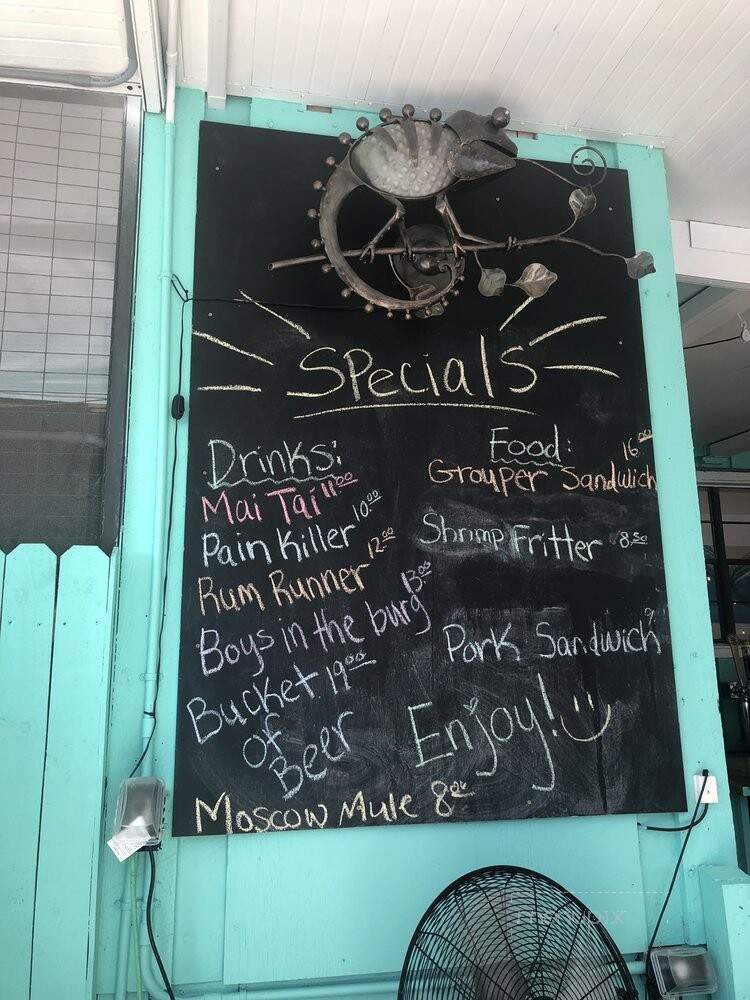 Specials
Drinks:
Mai Tai 11.00
Pain Killer 10.00
Rum Runner 12.00
Boys in the burg 13.00
Bucket 19.00
of
Beer
Moscow Mule 8.00
Food:
16.00
Grouper Sandwich
Shrimp Fritter 8.50
Pork Sandwich
Enjoy!